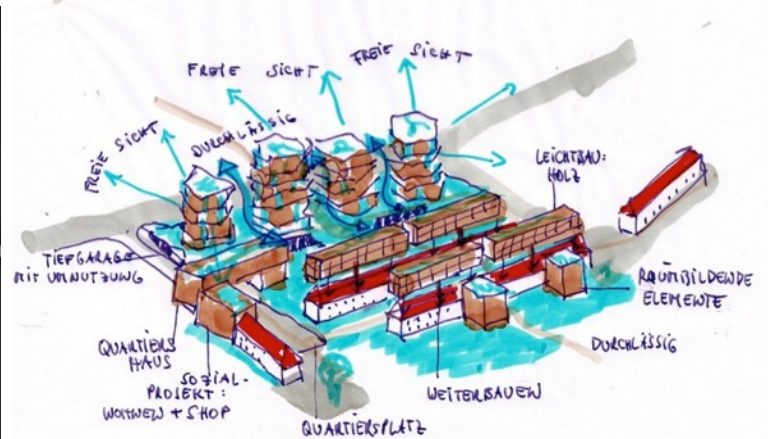 FREIE SICHT
FREIE SICHT
FREIE SICHT
DURCHLÄSSIG
LEICHTBAU:
HOLZ
TIEFGARAGE
MIT UMNUTZUNG
RAUMBILDENDE
ELEMENTE
QUARTIERS
HAUS
SOZIAL-
PROJEKT:
WOHNEN + SHOP
DURCHLÄSSIG
WEITERBAUEN
QUARTIERSPLATZ